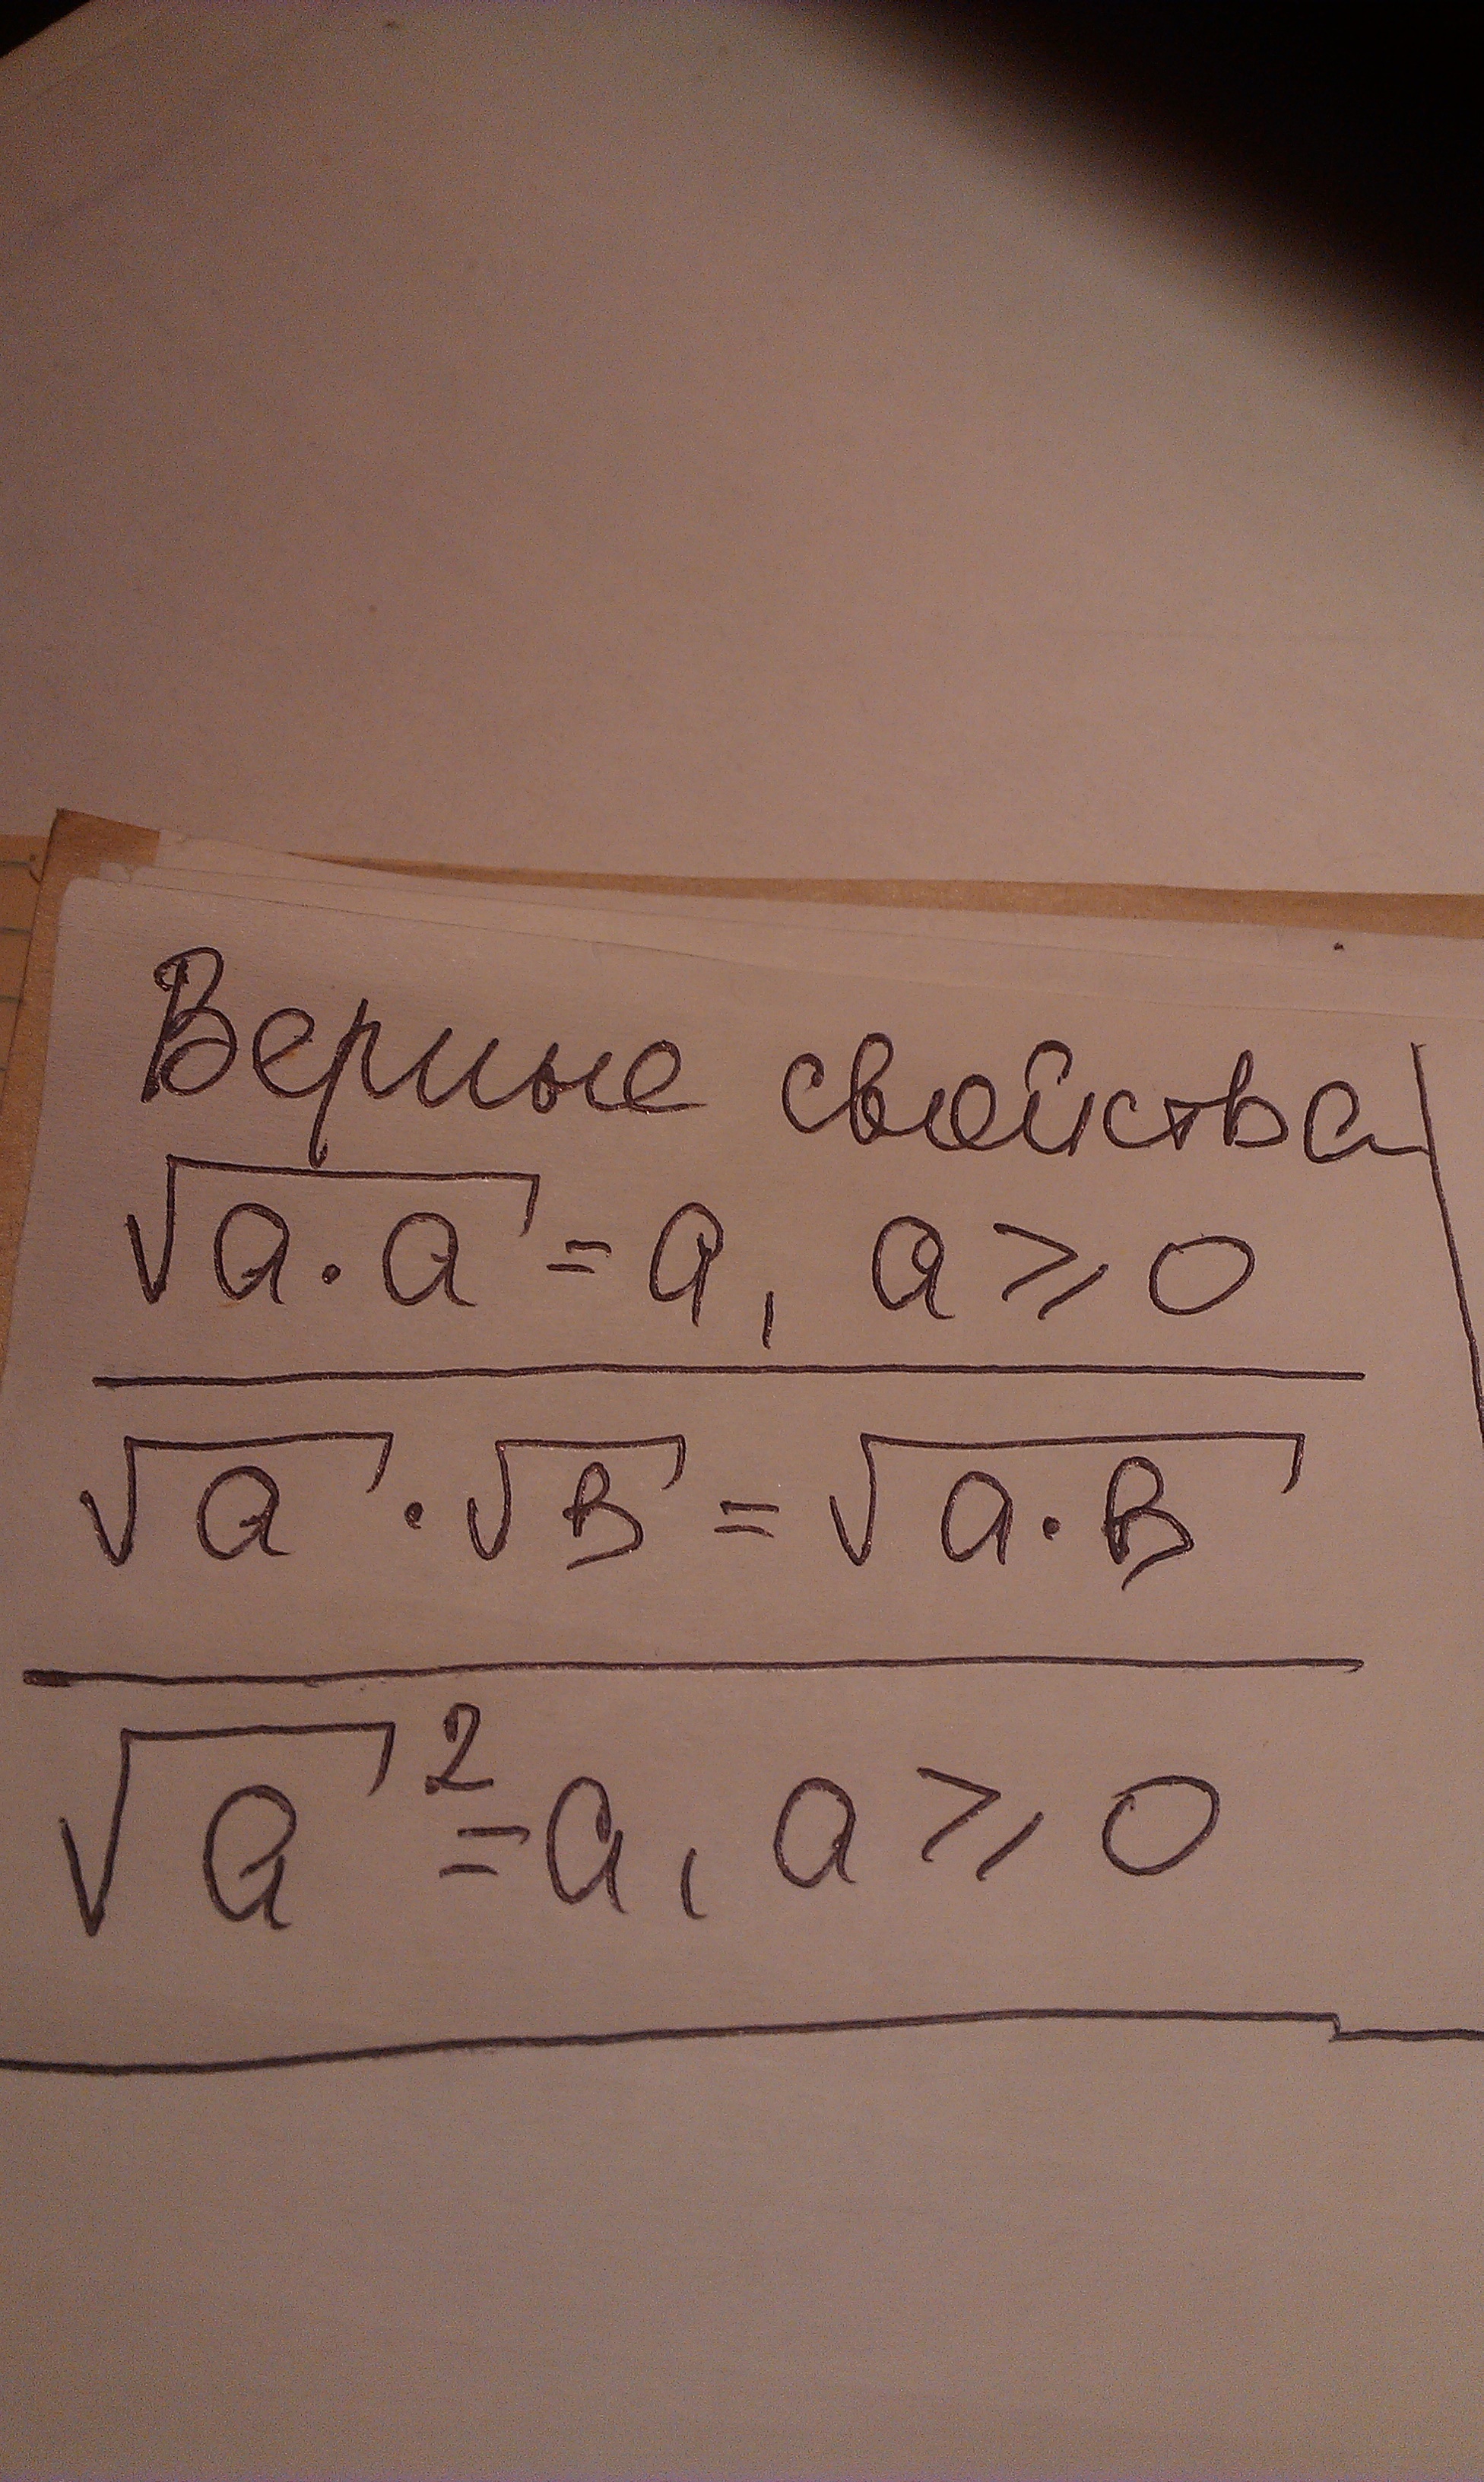 Верные свойства
√a·a = a, a ⩾ 0
√a · √в = √a·в
√a² = a, a ⩾ 0